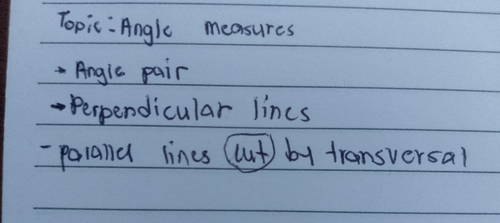 Topic: Angle measures
→ Angle pair
→ Perpendicular lines
- parallel lines cut by transversal